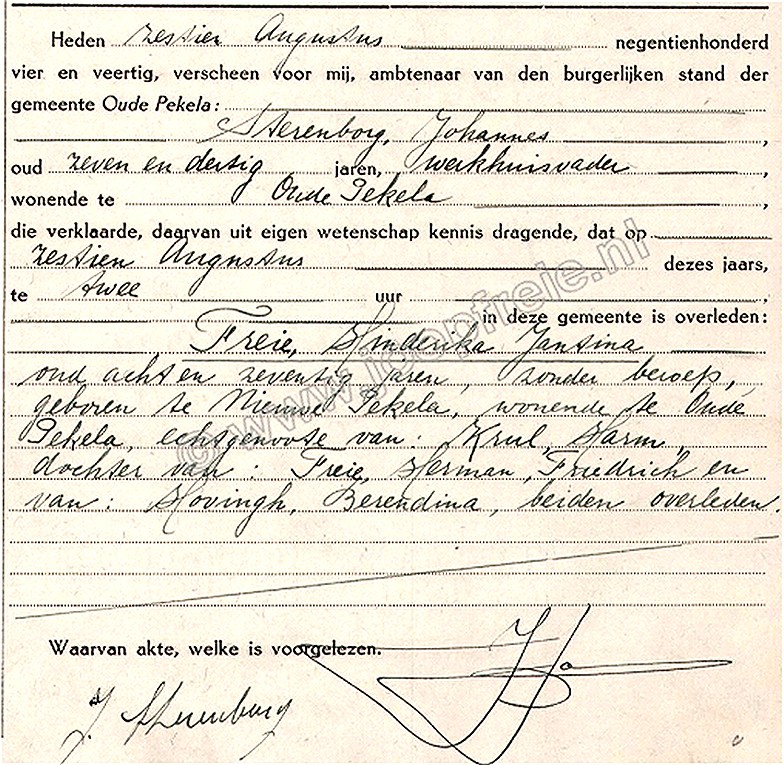 Heden zestien Augustus negentienhonderd
vier en veertig, verscheen voor mij, ambtenaar van den burgerlijken stand der
gemeente Oude Pekela:
Sterenborg, Johannes,
oud zeven en dertig jaren, werkhuisvader,
wonende te Oude Pekela,
die verklaarde, daarvan uit eigen wetenschap kennis dragende, dat op
zestien Augustus dezes jaars,
te twee uur,
in deze gemeente is overleden:
Freie, Hinderika Jantina
oud acht en zeventig jaren, zonder beroep,
geboren te Nieuwe Pekela, wonende te Oude
Pekela, echtgenoote van: Krul, Harm,
dochter van: Freie, Herman, Friedrich en
van: Hovingh, Berendina, beiden overleden.
Waarvan akte, welke is voorgelezen.
J. Sterenborg
© www.joopfreie.nl